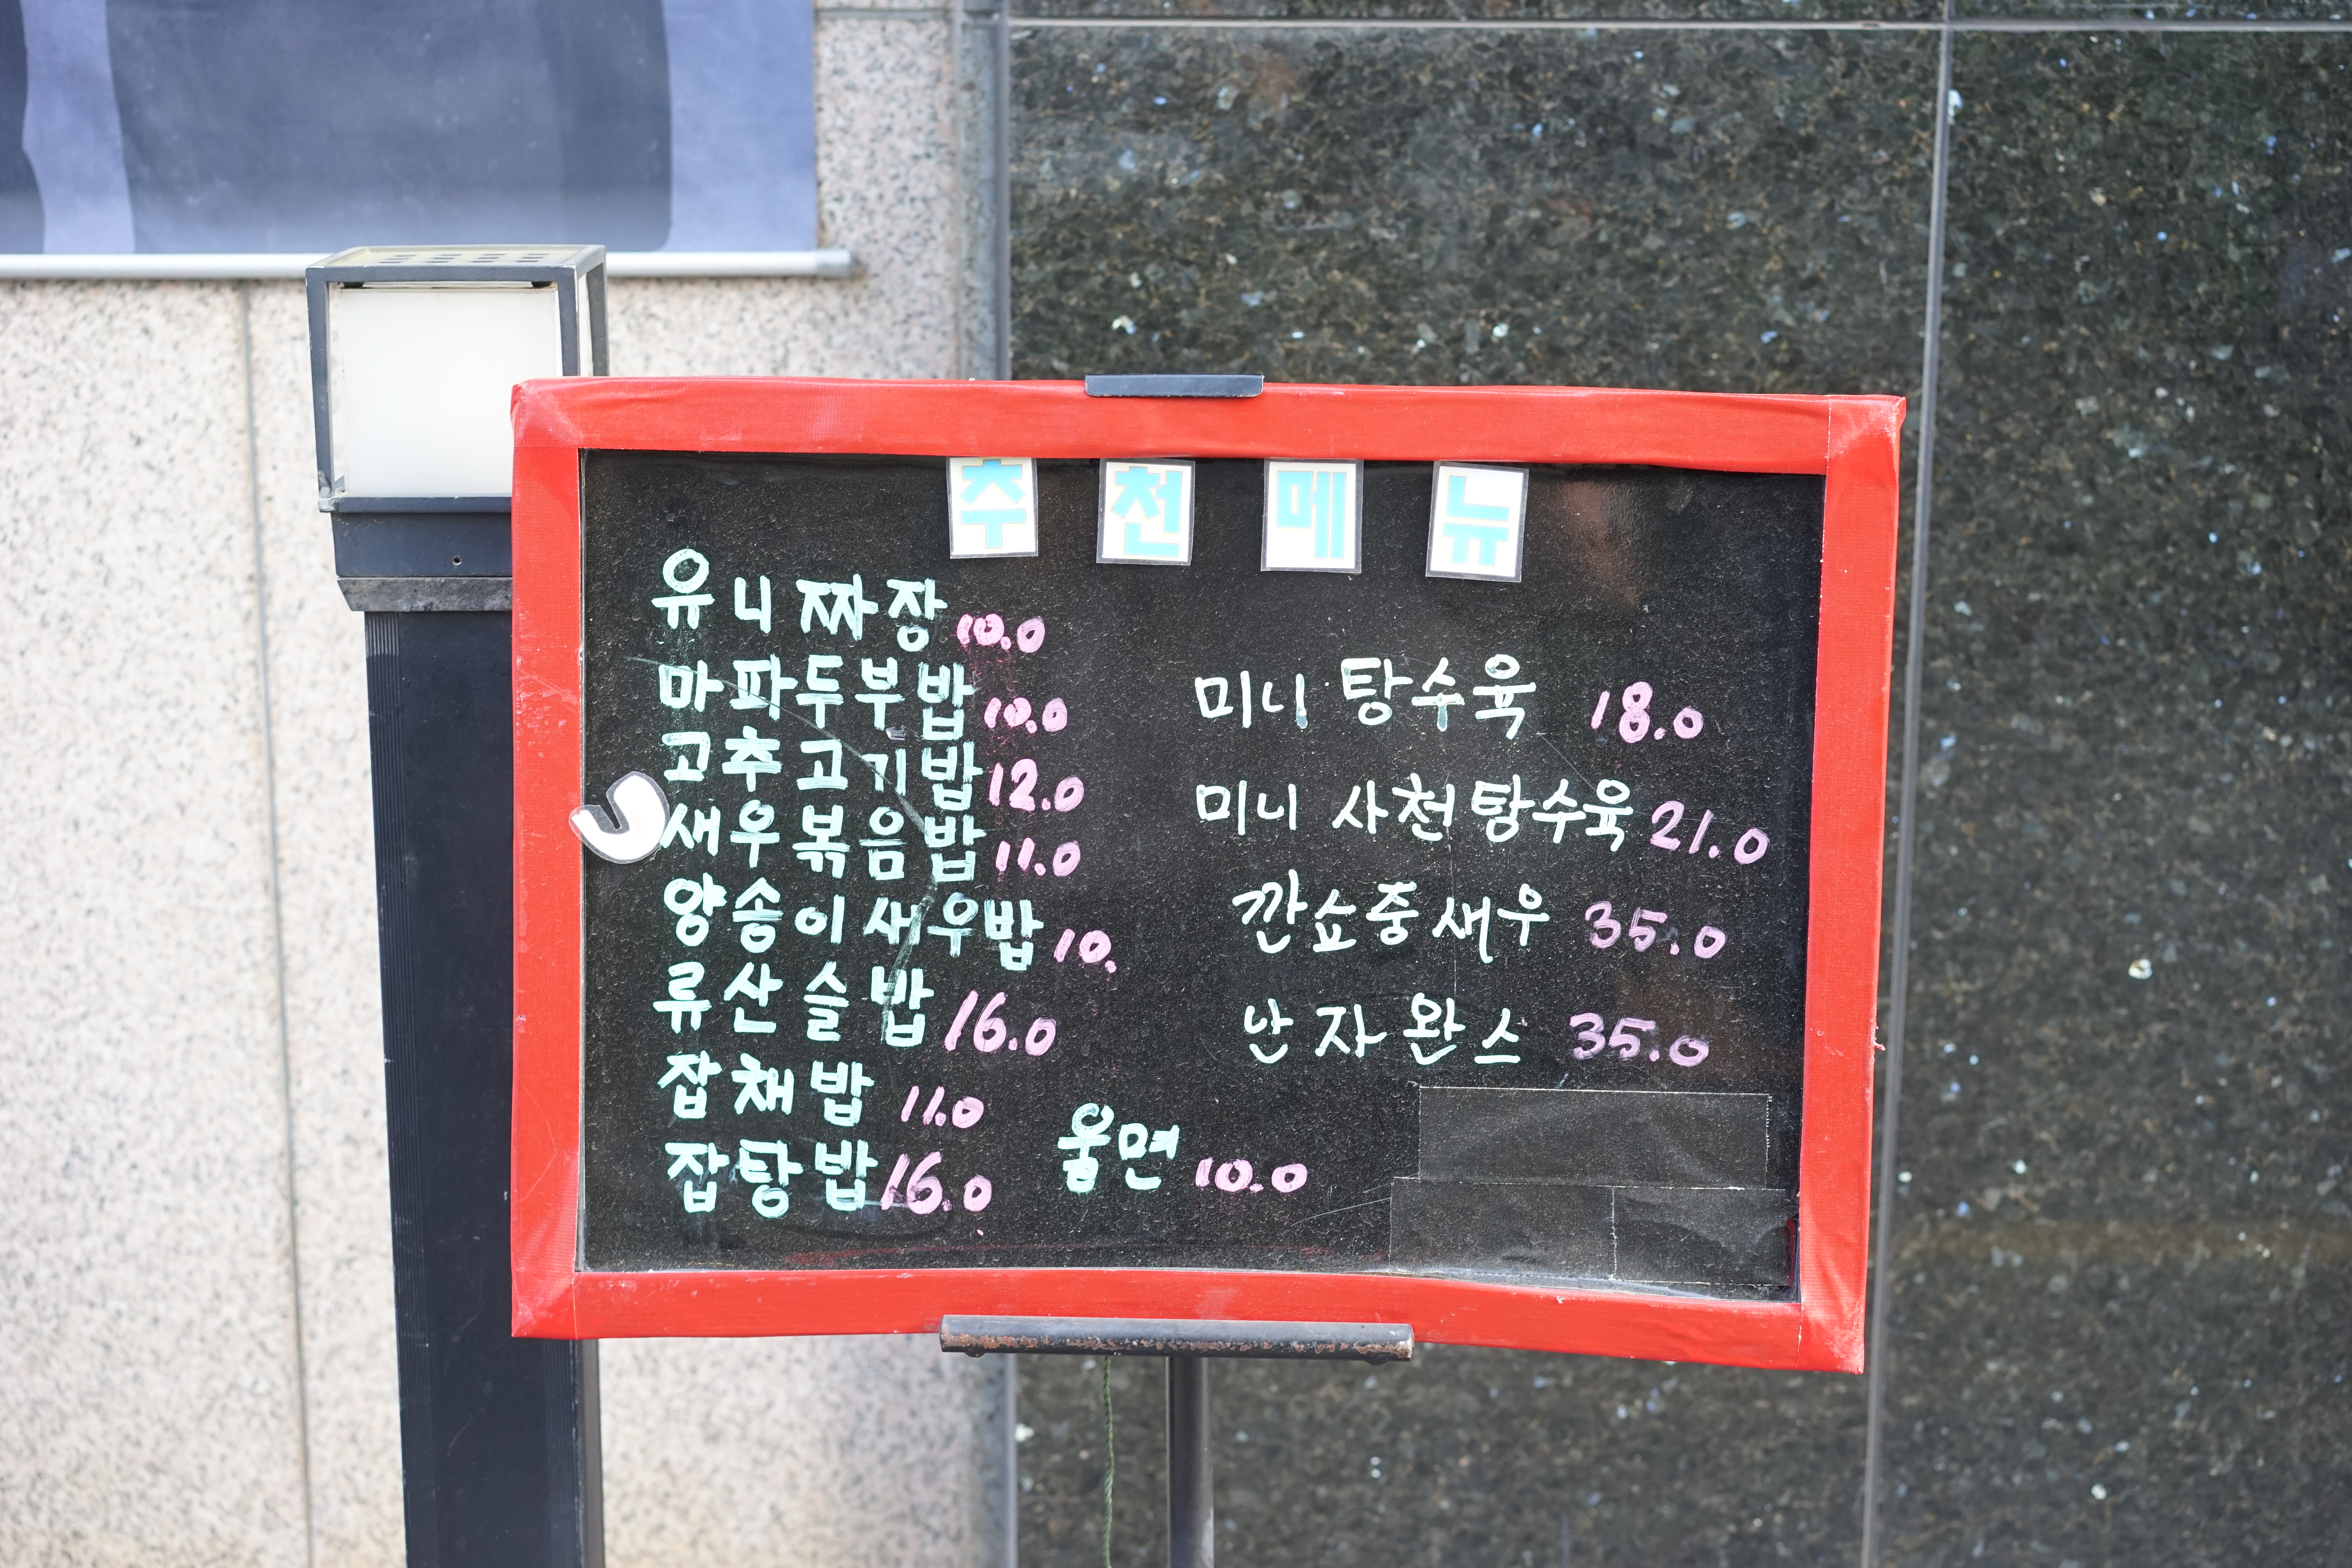 추천메뉴
유니짜장 10.0
마파두부밥 10.0
고추고기밥 12.0
새우볶음밥 11.0
양송이새우밥 10.
류산슬밥 16.0
잡채밥 11.0
잡탕밥 16.0
움면 10.0
미니 탕수육 18.0
미니 사천탕수육 21.0
깐쇼중새우 35.0
난자완스 35.0